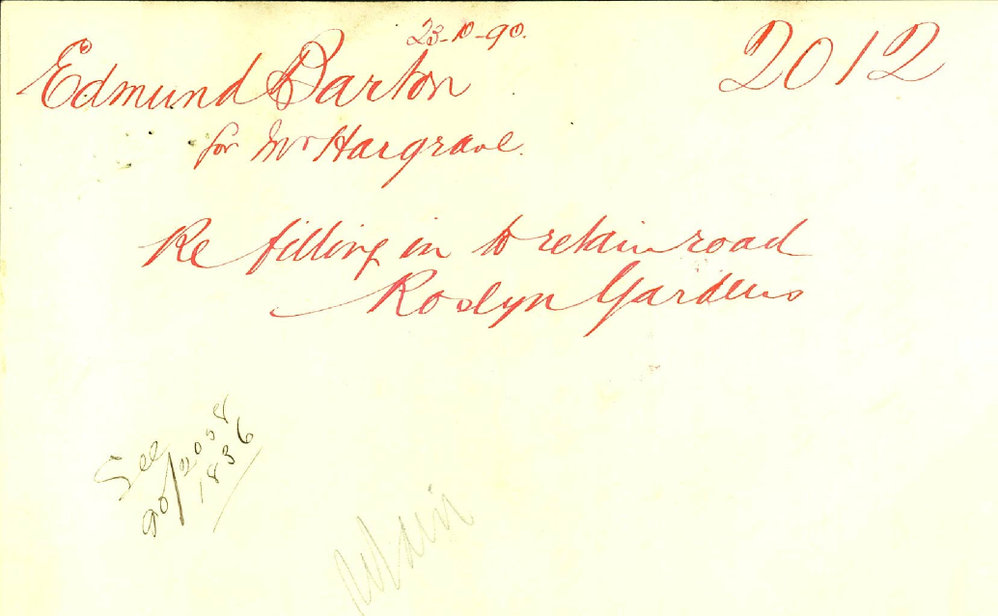 23-10-90.
Edmund Barton
2012
for Mr Hargrave.
Re filling in to retain road
Roslyn Gardens
See
90/2058
1836